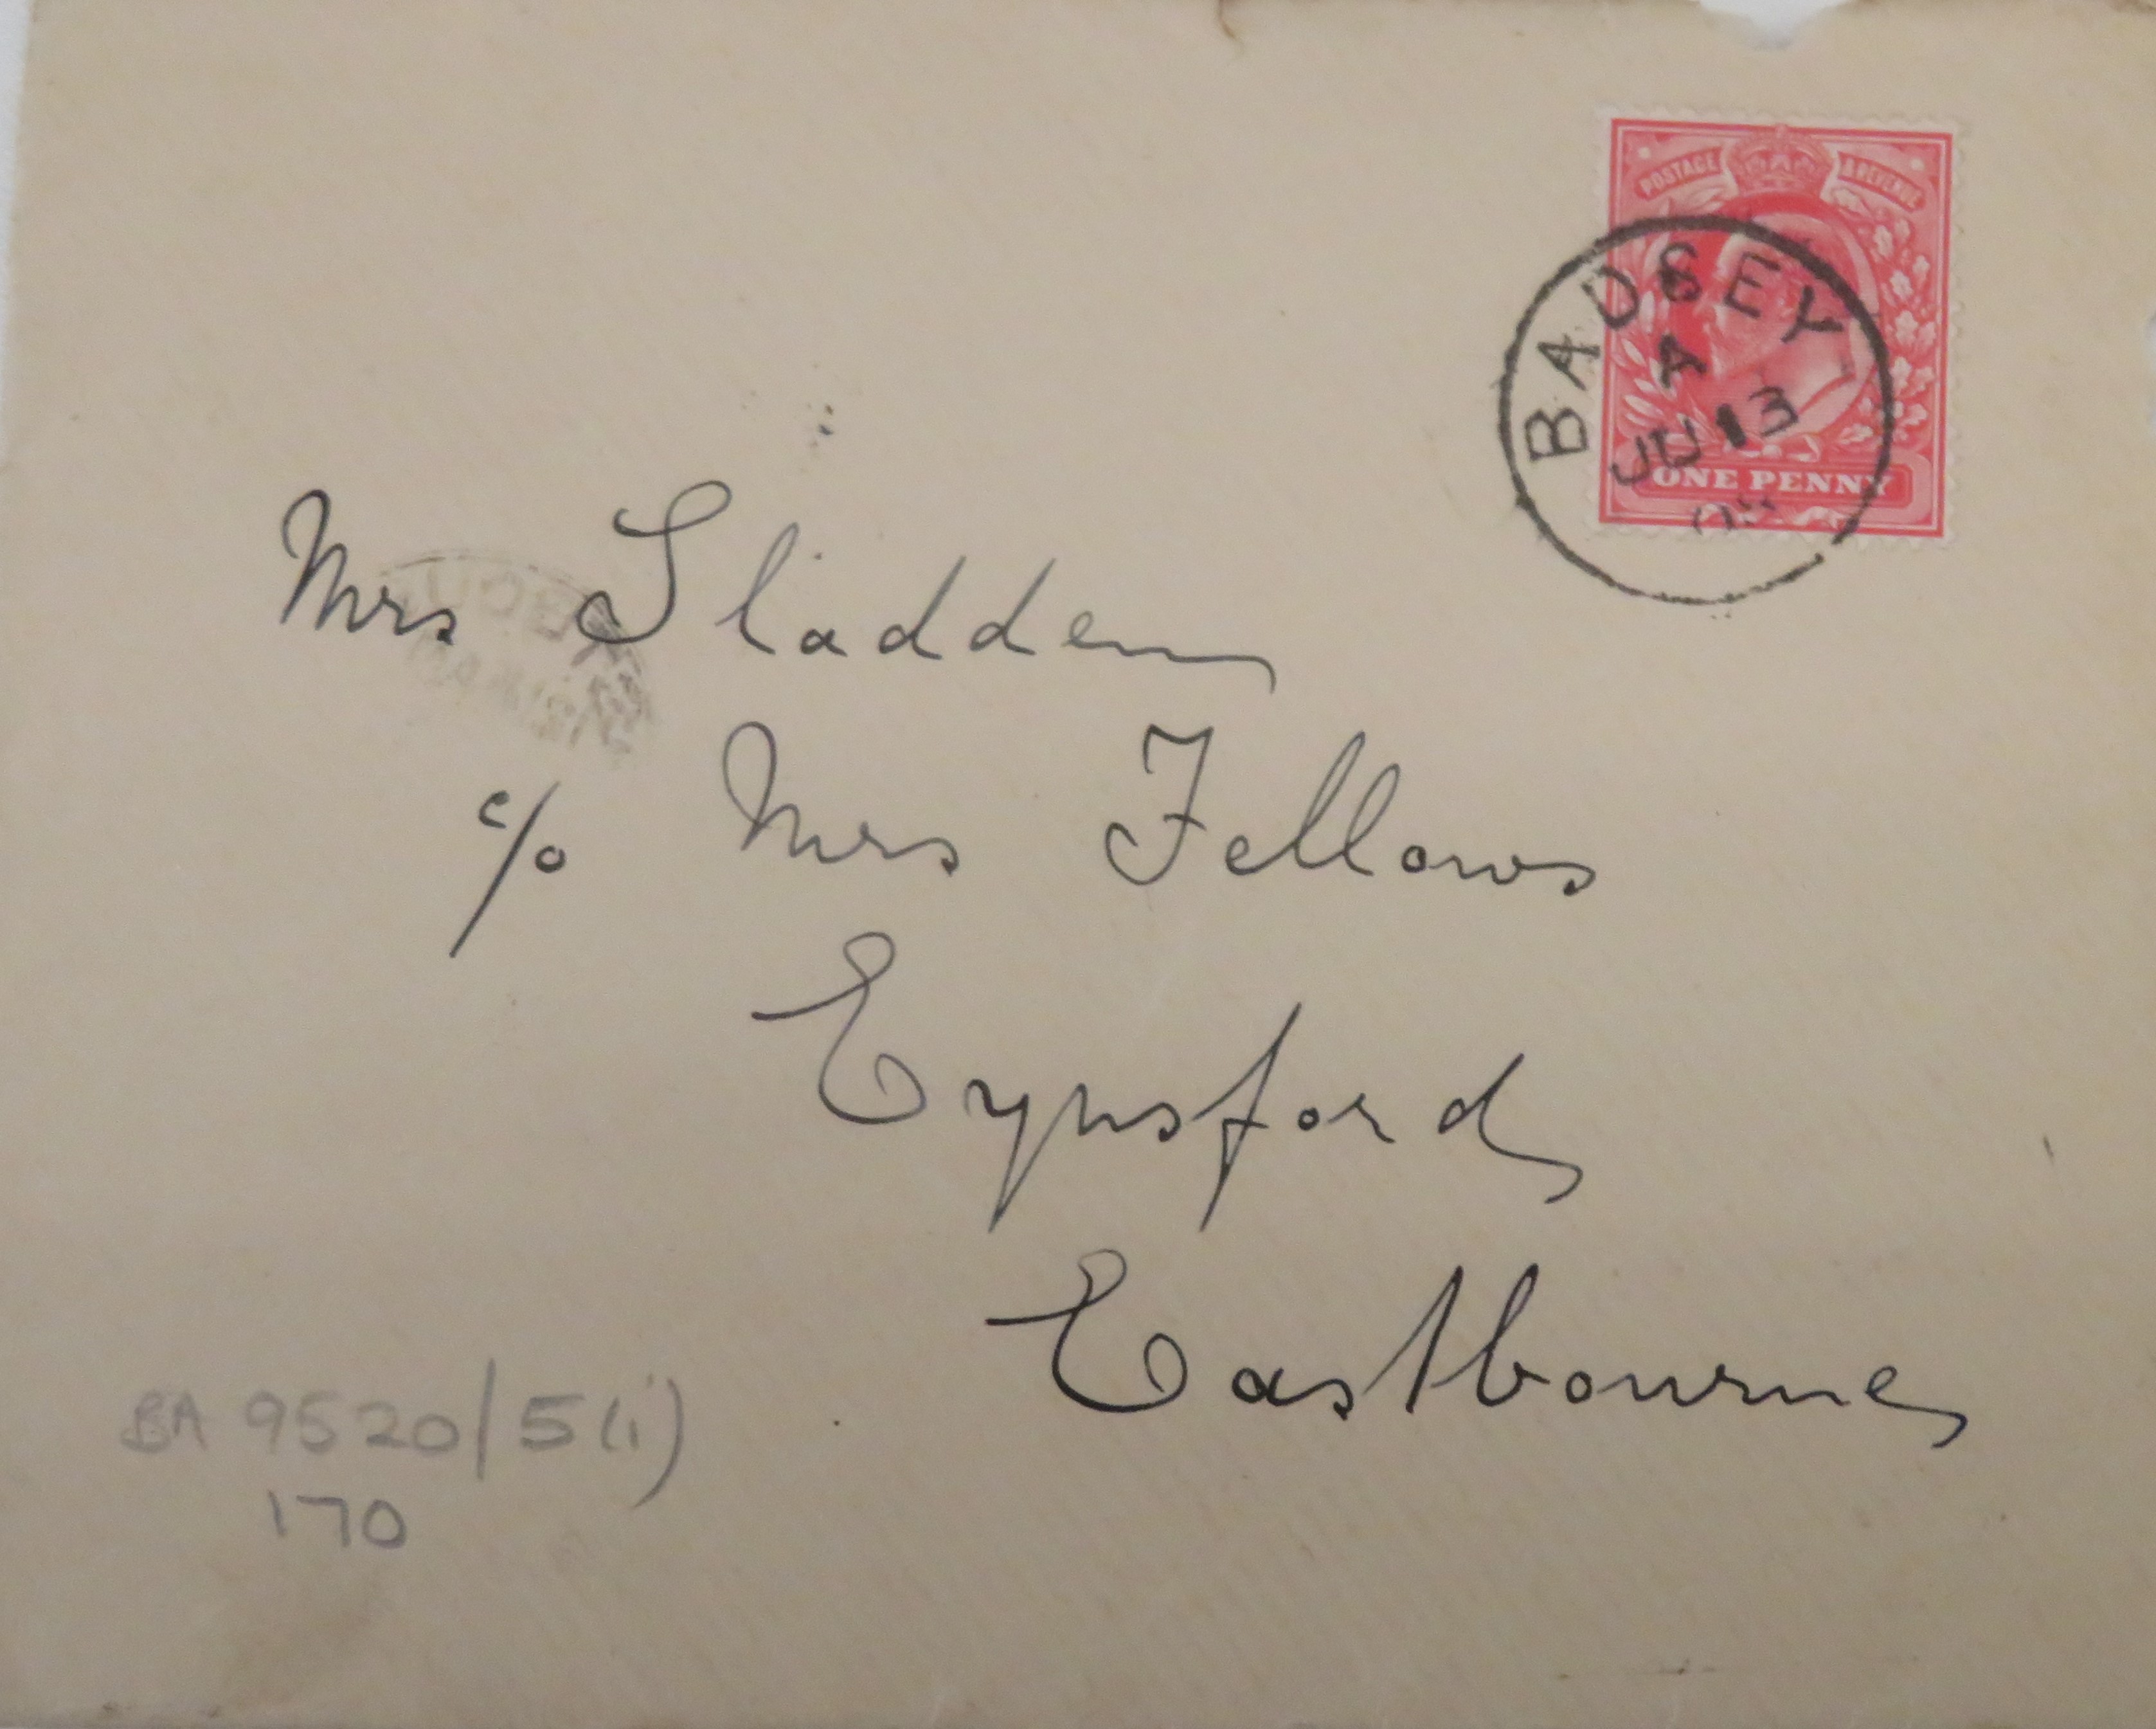 POSTAGE & REVENUE
BADSEY
A
JU 13
ONE PENNY
Mrs Sladden
c/o Mrs Fellows
Eynsford
Eastbourne
BA 9520/5(i)
170